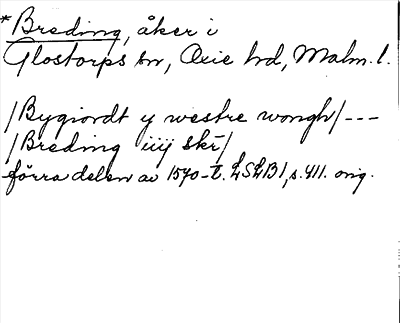 *Breding, åker i
Glostorps sn, Oxie hd, Malm. l.
/Bygiordt y westre wongh/---
/Breding iiij skr̄/
förra delen av 1570-t. LSLB1, s. 411. orig.